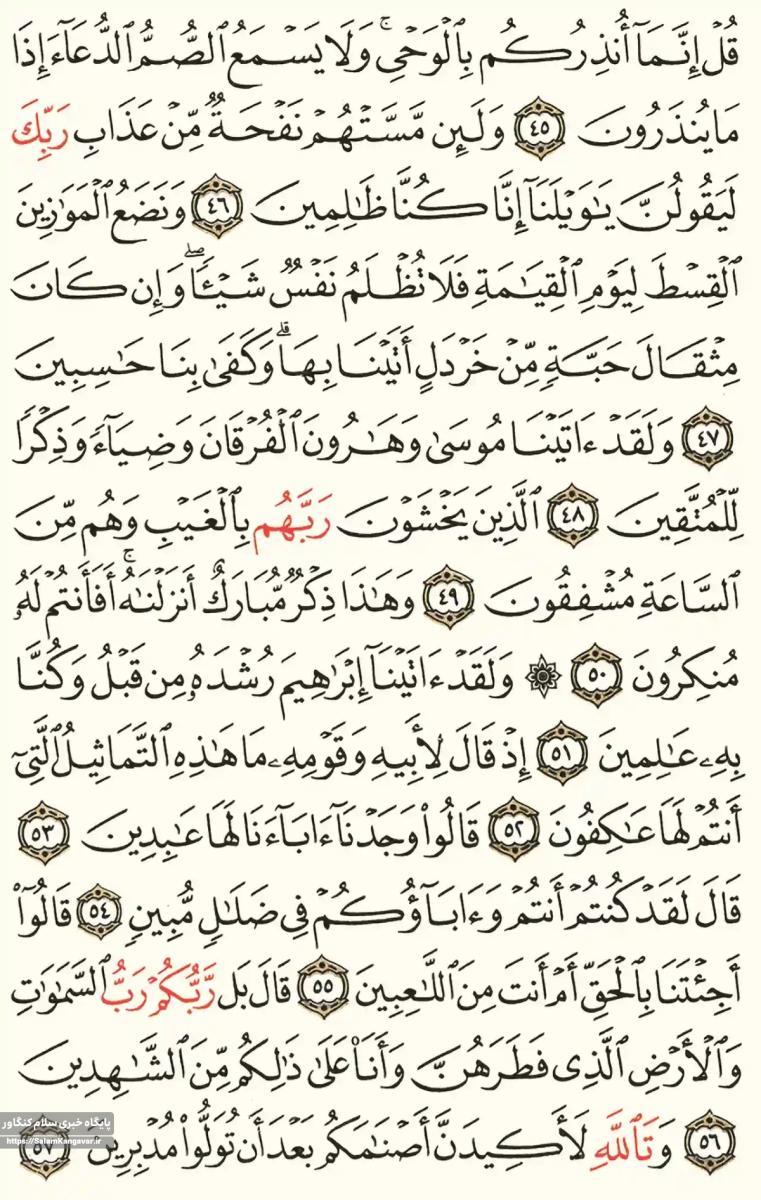 قُلْ إِنَّمَآ أُنذِرُكُم بِٱلْوَحْىِ ۚ وَلَا يَسْمَعُ ٱلصُّمُّ ٱلدُّعَآءَ إِذَا
مَا يُنذَرُونَ ٤٥ وَلَئِن مَّسَّتْهُمْ نَفْحَةٌ مِّنْ عَذَابِ رَبِّكَ
لَيَقُولُنَّ يَـٰوَيْلَنَآ إِنَّا كُنَّا ظَـٰلِمِينَ ٤٦ وَنَضَعُ ٱلْمَوَٰزِينَ
ٱلْقِسْطَ لِيَوْمِ ٱلْقِيَـٰمَةِ فَلَا تُظْلَمُ نَفْسٌ شَيْـًٔا ۖ وَإِن كَانَ
مِثْقَالَ حَبَّةٍ مِّنْ خَرْدَلٍ أَتَيْنَا بِهَا ۗ وَكَفَىٰ بِنَا حَـٰسِبِينَ
٤٧ وَلَقَدْ ءَاتَيْنَا مُوسَىٰ وَهَـٰرُونَ ٱلْفُرْقَانَ وَضِيَآءً وَذِكْرًا
لِّلْمُتَّقِينَ ٤٨ ٱلَّذِينَ يَخْشَوْنَ رَبَّهُم بِٱلْغَيْبِ وَهُم مِّنَ
ٱلسَّاعَةِ مُشْفِقُونَ ٤٩ وَهَـٰذَا ذِكْرٌ مُّبَارَكٌ أَنزَلْنَـٰهُ ۚ أَفَأَنتُمْ لَهُۥ
مُنكِرُونَ ٥٠ ۞ وَلَقَدْ ءَاتَيْنَآ إِبْرَٰهِيمَ رُشْدَهُۥ مِن قَبْلُ وَكُنَّا
بِهِۦ عَـٰلِمِينَ ٥١ إِذْ قَالَ لِأَبِيهِ وَقَوْمِهِۦ مَا هَـٰذِهِ ٱلتَّمَاثِيلُ ٱلَّتِىٓ
أَنتُمْ لَهَا عَـٰكِفُونَ ٥٢ قَالُوا۟ وَجَدْنَآ ءَابَآءَنَا لَهَا عَـٰبِدِينَ ٥٣
قَالَ لَقَدْ كُنتُمْ أَنتُمْ وَءَابَآؤُكُمْ فِى ضَلَـٰلٍ مُّبِينٍ ٥٤ قَالُوٓا۟
أَجِئْتَنَا بِٱلْحَقِّ أَمْ أَنتَ مِنَ ٱللَّـٰعِبِينَ ٥٥ قَالَ بَل رَّبُّكُمْ رَبُّ ٱلسَّمَـٰوَٰتِ
وَٱلْأَرْضِ ٱلَّذِى فَطَرَهُنَّ وَأَنَا۠ عَلَىٰ ذَٰلِكُم مِّنَ ٱلشَّـٰهِدِينَ
٥٦ وَتَٱللَّهِ لَأَكِيدَنَّ أَصْنَـٰمَكُم بَعْدَ أَن تُوَلُّوا۟ مُدْبِرِينَ ٥٧
پایگاه خبری سلام کنگاور
https://SalamKangavar.ir